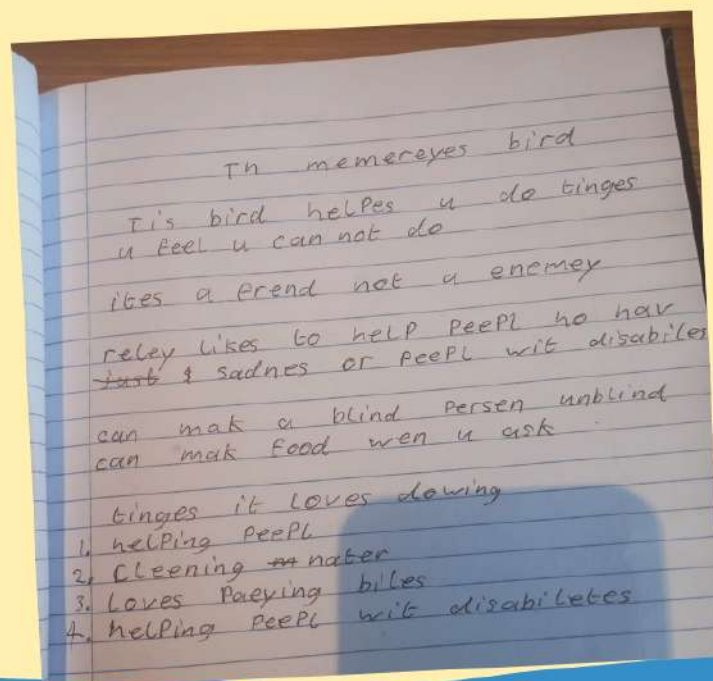 Th memereyes bird
Ti's bird helpes u do tinges
u feel u can not do
ites a frend not a enemey
reley likes to help peepl ho hav
just & sadnes or peepl wit disabiles
can mak a blind persen unblind
can mak food wen u ask.
tinges it loves dowing
1. helping peepl
2, cleening nater
3. Loves paeying biles
4. helping peepl wit disabiletes